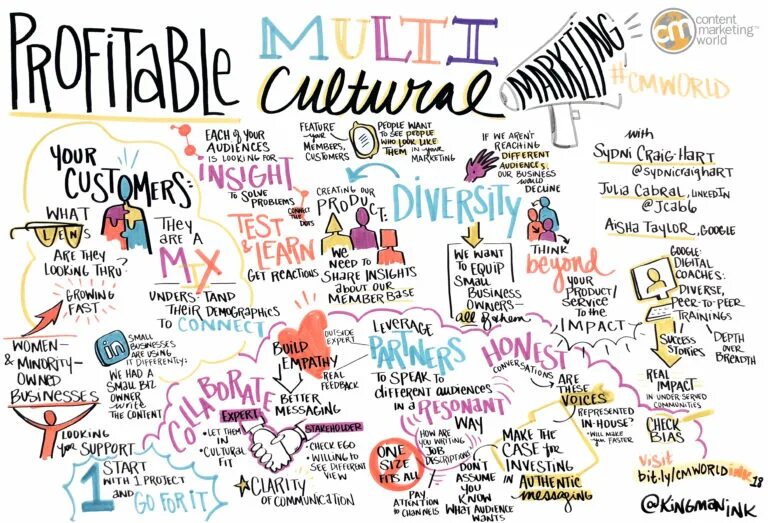 PROFITABLE
MULTI
Cultural
MARKETING
cm
content
marketing™
world
#CMWORLD
with
Sydni Craig-Hart
@sydnicraighart
Julia Cabral, LINKEDIN
@Jcab6
Aisha Taylor, GOOGLE
YOUR
CUSTOMERS:
WHAT
LENS
ARE THEY
LOOKING THRU
THEY
ARE A
MIX
UNDERSTAND
THEIR DEMOGRAPHICS
TO CONNECT
GROWING
FAST
WOMEN-
& MINORITY-
OWNED
BUSINESSES
LOOKING
for SUPPORT
EACH of YOUR
AUDIENCES
IS LOOKING FOR
INSIGHT
TO SOLVE
PROBLEMS
CONNECT
THE
DOTS
TEST
& LEARN
GET REACTIONS
FEATURE
your
MEMBERS,
CUSTOMERS
PEOPLE WANT
TO SEE PEOPLE
WHO LOOK LIKE
THEM in YOUR
MARKETING
CREATING OUR
PRODUCT:
WE
NEED TO
SHARE INSIGHTS
ABOUT OUR
MEMBER BASE
DIVERSITY
IF WE AREN'T
REACHING
DIFFERENT
AUDIENCES
OUR BUSINESS
WOULD
DECLINE
WE WANT
TO EQUIP
SMALL
BUSINESS
OWNERS—
all of them
THINK
beyond
YOUR
PRODUCT/
SERVICE
TO the
IMPACT
GOOGLE:
DIGITAL
COACHES:
DIVERSE,
PEER-TO-PEER
TRAININGS
SUCCESS
STORIES
DEPTH
OVER
BREADTH
REAL
IMPACT
IN UNDERSERVED
COMMUNITIES
in
SMALL
BUSINESSES
ARE USING
IT DIFFERENTLY:
WE HAD A
SMALL BIZ
OWNER
write
THE CONTENT
COLLABORATE
BUILD
EMPATHY
OUTSIDE
EXPERT
REAL
FEEDBACK
BETTER
MESSAGING
EXPERT
• LET THEM
IN
• CULTURAL
FIT
STAKEHOLDER
• CHECK EGO
• WILLING TO
SEE DIFFERENT
VIEW
CLARITY
OF COMMUNICATION
LEVERAGE
PARTNERS
TO SPEAK TO
DIFFERENT AUDIENCES
IN A RESONANT
WAY
ONE
SIZE
FITS ALL
HOW ARE
YOU WRITING
JOB
DESCRIPTIONS?
PAY
ATTENTION
TO CHANNELS
DON'T
ASSUME
YOU
KNOW
WHAT AUDIENCE
WANTS
HONEST
CONVERSATIONS
ARE
THESE
VOICES
REPRESENTED
IN-HOUSE?
MAKE THE
CASE FOR
INVESTING
IN
AUTHENTIC
messaging
CHECK
BIAS
1
START
WITH 1 PROJECT
AND GO FOR IT
VISIT
bit.ly/CMWORLDink18
@KINGMANINK